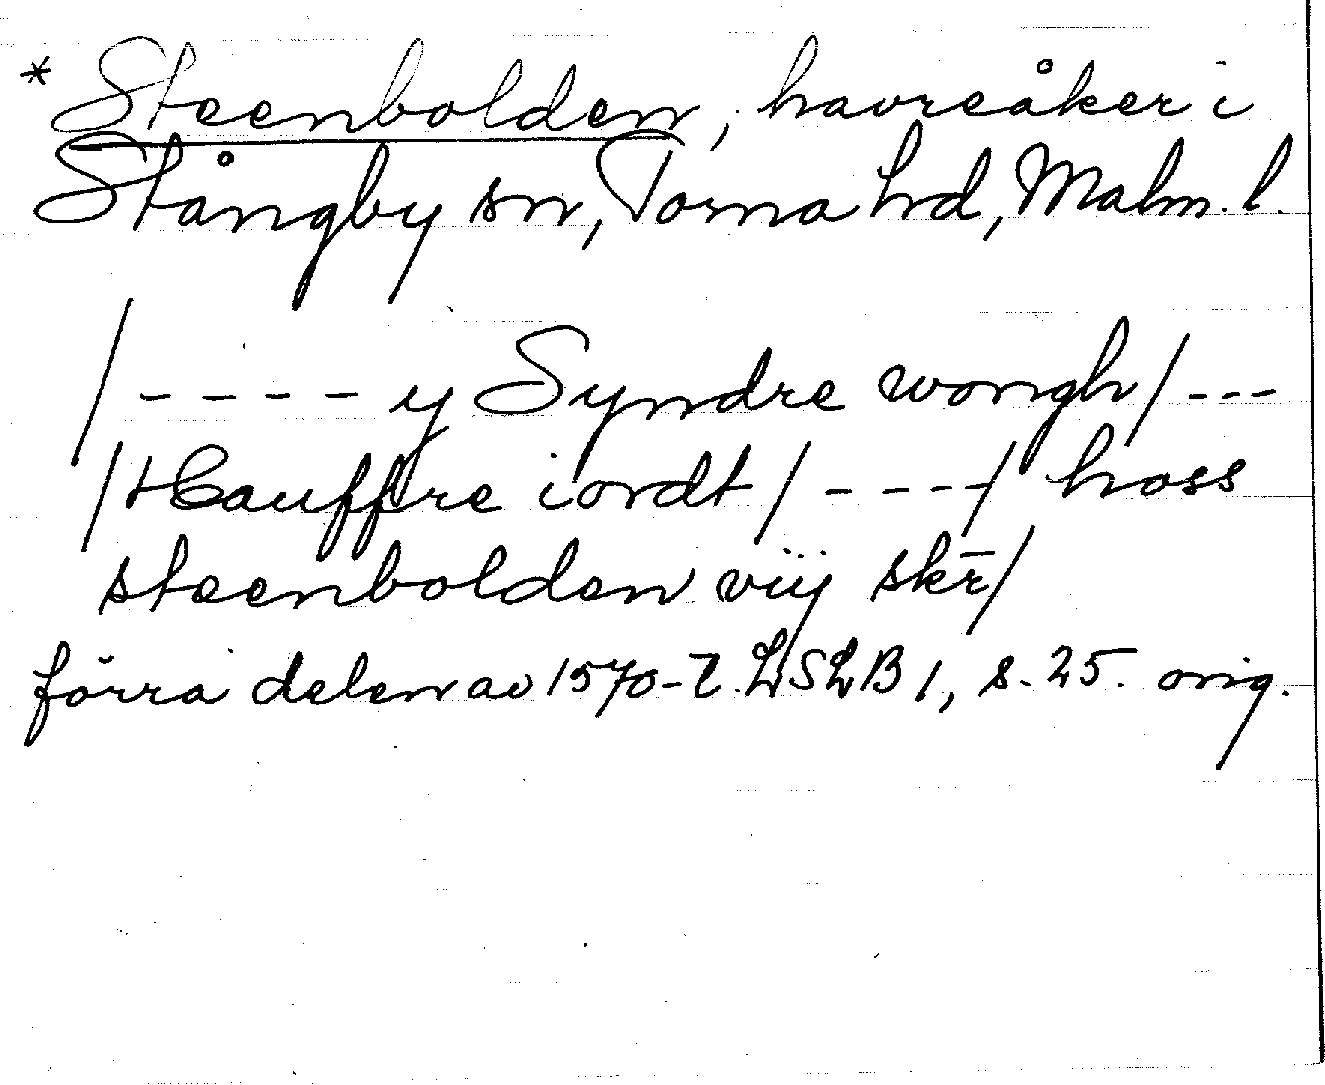 * Steenbolden, havreåker i
Stångby sn, Torna hd, Malm. l.
/ - - - - - y Syndre wongh / - - -
/ Hauffre iordt / - - - - / hoss
steenbolden viij skr̄ /
förra delen av 1570-t. LSLB 1, s. 25. orig.